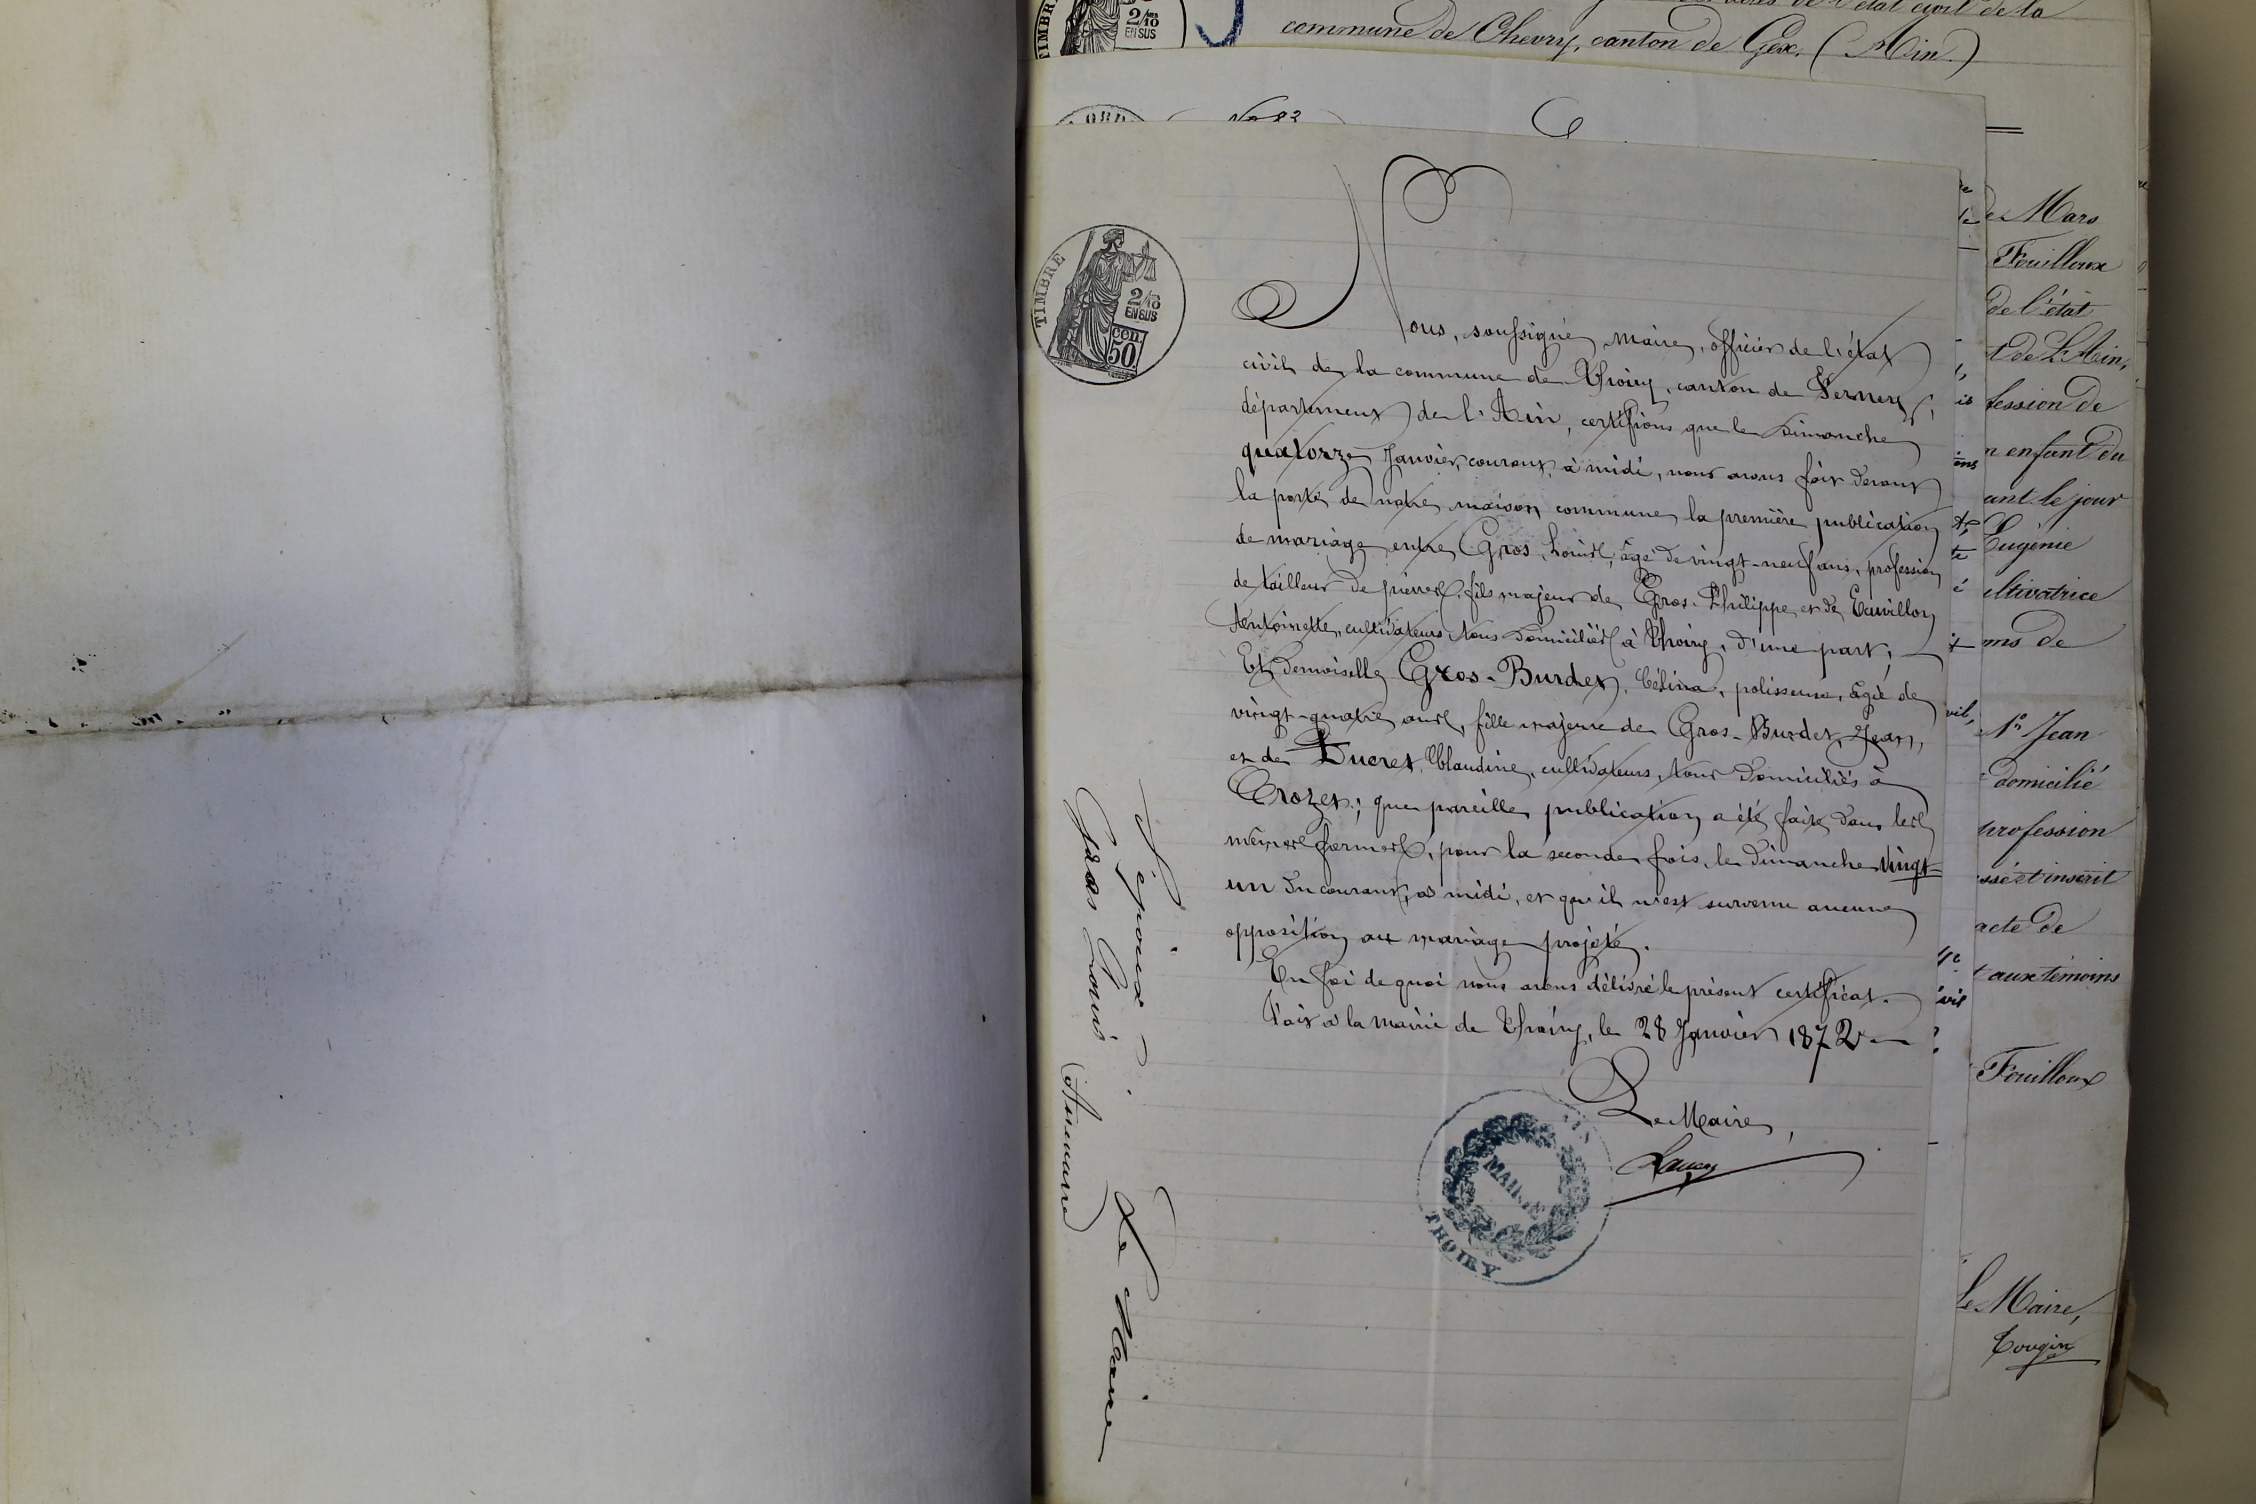 commune de Chevry, canton de Gex. (Ain.)
TIMBRE
2/10
EN SUS
No 83
TIMBRE
2/10
EN SUS
cen.
50
Nous, soussigné, Maire, officier de l'état
civil de la commune de Thoiry, canton de Ferney,
département de l'Ain, certifions que le dimanche
quatorze Janvier courant, à midi, nous avons fait devant
la porte de notre maison commune, la première publication
de mariage entre Gros, Louis, âgé de vingt-neuf ans, profession
de tailleur de pierres, fils majeur de Gros Philippe et de
Antoinette, cultivateurs tous domiciliés à Thoiry, d'une part,
Et demoiselle Gros-Burdet, Célina, polisseuse, âgée de
vingt-quatre ans, fille majeure de Gros-Burdet, Jean,
et de Ducret, Claudine, cultivateurs, tous domiciliés à
Crozet; que pareille publication a été faite dans les
mêmes formes, pour la seconde fois, le dimanche vingt-
un du courant, à midi, et qu'il n'est survenu aucune
opposition au mariage projeté.
En foi de quoi nous avons délivré le présent certificat.
Fait à la Mairie de Thoiry, le 28 Janvier 1872
Le Maire,
MAIRIE
THOIRY
L'époux
Gros Louis
Le Maire
de Mars
Fouilloux
de l'état
t de L'Ain,
fession de
n enfant du
ant le jour
Eugénie
ltivatrice
ms de
1º Jean
domicilié
profession
ssé et inscrit
acte de
t aux témoins
Fouilloux
Le Maire,
Tougin